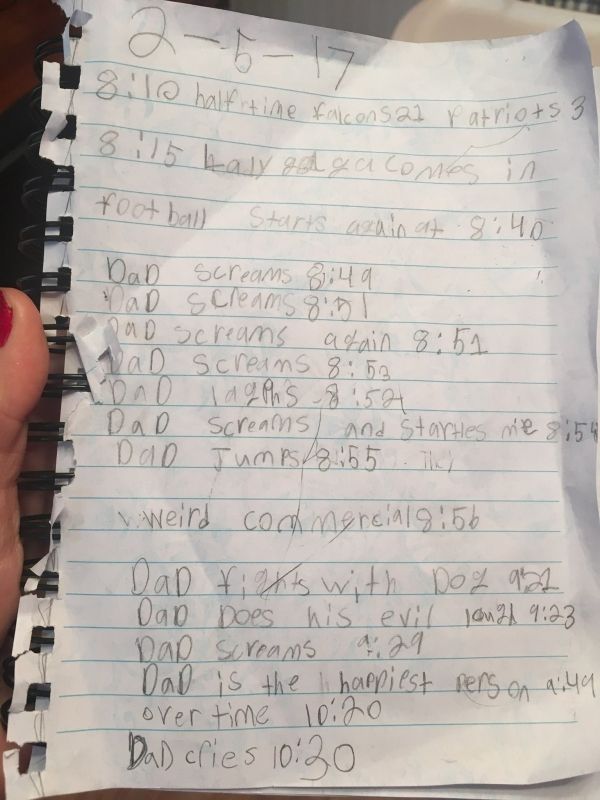 2-5-17
8:10 halftime falcons 21 Patriots 3
8:15 Lady gaga comes in
football starts again at 8:40
DaD screams 8:49
DaD screams 8:51
DaD screams again 8:51
DaD screams 8:53
DaD laghs 8:54
DaD screams and startles me 8:54
DaD Jumps 8:55
weird commercial 8:56
DaD fights with Dog 9:21
DaD Does his evil laugh 9:23
DaD screams 9:29
DaD is the happiest person 9:49
over time 10:20
DaD cries 10:30